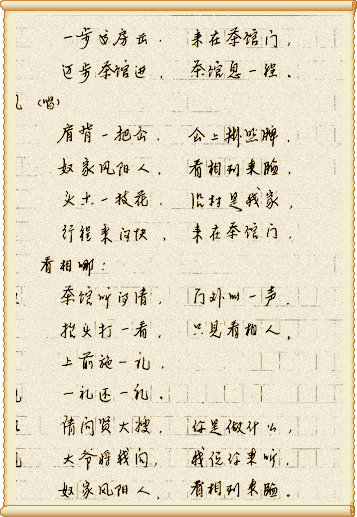 一步过房去. 来在茶馆门,
迈步茶馆进, 茶馆息一程.
(唱)
肩背一把伞, 伞上掛照牌,
奴家凤阳人, 看相到来临.
头上一枝花, 沿村是我家,
行程来的快, 来在茶馆门.
看相哪:
茶馆听的清, 门外叫一声.
抬头打一看, 只见看相人,
上前施一礼,
一礼还一礼.
请问贤大嫂, 你是做什么,
大爷将我问, 我说你来听,
奴家凤阳人, 看相到来临.